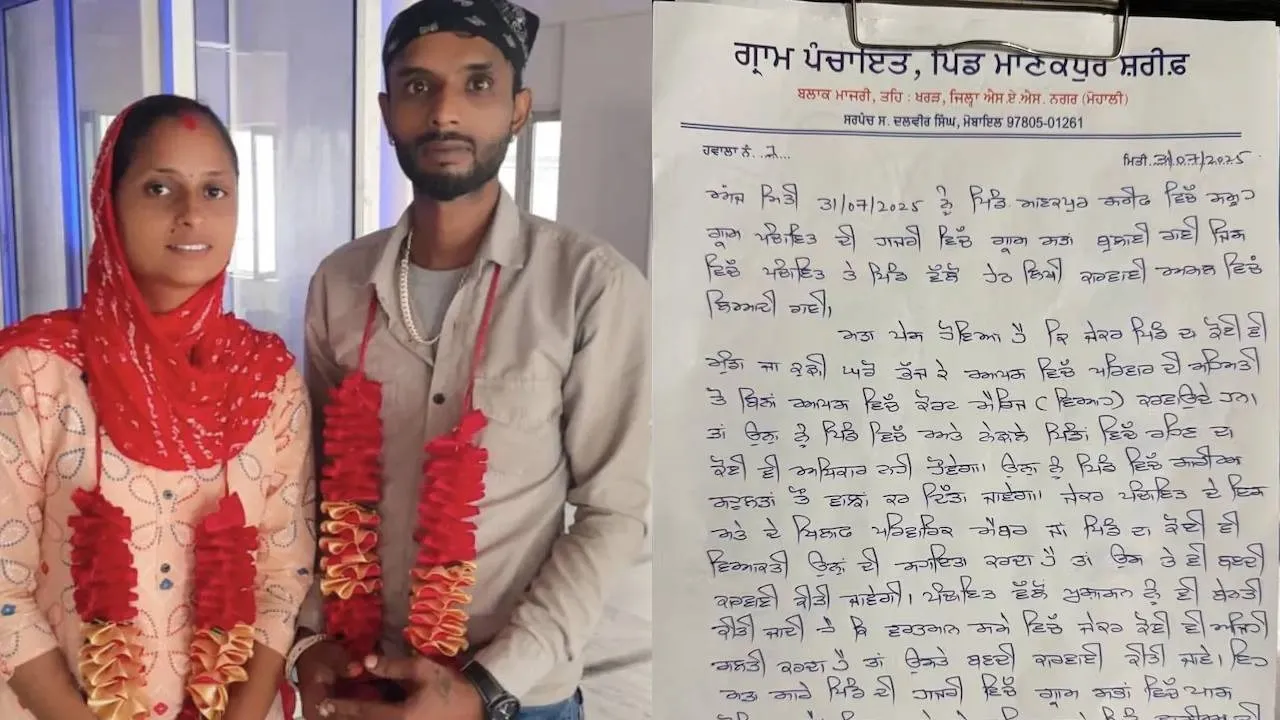 ਗ੍ਰਾਮ ਪੰਚਾਇਤ, ਪਿੰਡ ਮਾਣਕਪੁਰ ਸ਼ਰੀਫ਼
ਬਲਾਕ ਮਾਜਰੀ, ਤਹਿ : ਖਰੜ, ਜਿਲ੍ਹਾ ਐਸ.ਏ.ਐਸ. ਨਗਰ (ਮੋਹਾਲੀ)
ਸਰਪੰਚ ਸ. ਦਲਵੀਰ ਸਿੰਘ, ਮੋਬਾਇਲ 97805-01261
ਹਵਾਲਾ ਨੰ.
ਮਿਤੀ. 31/07/2025
ਅੱਜ ਮਿਤੀ 31/07/2025 ਨੂੰ ਪਿੰਡ ਮਾਣਕਪੁਰ ਸ਼ਰੀਫ ਵਿੱਚ ਸਮੂਹ
ਗ੍ਰਾਮ ਪੰਚਾਇਤ ਦੀ ਹਾਜਰੀ ਵਿੱਚ ਗ੍ਰਾਮ ਸਭਾ ਬੁਲਾਈ ਗਈ ਜਿਸ
ਵਿੱਚ ਪੰਚਾਇਤ ਤੇ ਪਿੰਡ ਵੱਲੋਂ ਹੇਠ ਲਿਖੀ ਕਰਵਾਈ ਅਮਲ ਵਿੱਚ
ਲਿਆਂਦੀ ਗਈ।
ਮਤਾ ਪੇਸ਼ ਹੋਇਆ ਹੈ ਕਿ ਜੇਕਰ ਪਿੰਡ ਦਾ ਕੋਈ ਵੀ
ਮੁੰਡਾ ਜਾ ਕੁੜੀ ਘਰੋਂ ਭੱਜ ਕੇ ਆਪਸ ਵਿੱਚ ਪਰਿਵਾਰ ਦੀ ਸਹਿਮਤੀ
ਤੋਂ ਬਿਨਾਂ ਆਪਸ ਵਿੱਚ ਕੋਰਟ ਮੈਰਿਜ (ਵਿਆਹ) ਕਰਵਾਉਂਦੇ ਹਨ।
ਤਾਂ ਉਨਾਂ ਨੂੰ ਪਿੰਡ ਵਿੱਚ ਅਤੇ ਨੇੜਲੇ ਪਿੰਡਾਂ ਵਿੱਚ ਰਹਿਣ ਦਾ
ਕੋਈ ਵੀ ਅਧਿਕਾਰ ਨਹੀਂ ਹੋਵੇਗਾ। ਉਨਾਂ ਨੂੰ ਪਿੰਡ ਵਿੱਚ
ਸਹੂਲਤਾਂ ਤੋਂ ਵਾਂਝਾ ਕਰ ਦਿੱਤਾ ਜਾਵੇਗਾ। ਜੇਕਰ ਪੰਚਾਇਤ ਦੇ ਇਸ
ਮਤੇ ਦੇ ਖਿਲਾਫ ਪਰਿਵਾਰਿਕ ਮੈਂਬਰ ਜਾਂ ਪਿੰਡ ਦਾ ਕੋਈ ਵੀ
ਵਿਅਕਤੀ ਉਨਾਂ ਦੀ ਸਹਾਇਤਾ ਕਰਦਾ ਹੈ ਤਾਂ ਉਸ ਤੇ ਵੀ ਬਣਦੀ
ਕਰਵਾਈ ਕੀਤੀ ਜਾਵੇਗੀ। ਪੰਚਾਇਤ ਵੱਲੋਂ ਪ੍ਰਸ਼ਾਸਨ ਨੂੰ ਵੀ ਬੇਨਤੀ
ਕੀਤੀ ਜਾਂਦੀ ਹੈ ਕਿ ਵਰਤਮਾਨ ਸਮੇਂ ਵਿੱਚ ਜੇਕਰ ਕੋਈ ਵੀ ਅਜਿਹੀ
ਗਲਤੀ ਕਰਦਾ ਹੈ ਤਾਂ ਉਸਤੇ ਬਣਦੀ ਕਰਵਾਈ ਕੀਤੀ ਜਾਵੇ। ਇਹ
ਮਤਾ ਸਾਰੇ ਪਿੰਡ ਦੀ ਹਾਜਰੀ ਵਿੱਚ ਗ੍ਰਾਮ ਸਭਾ ਵਿੱਚ ਪਾਸ